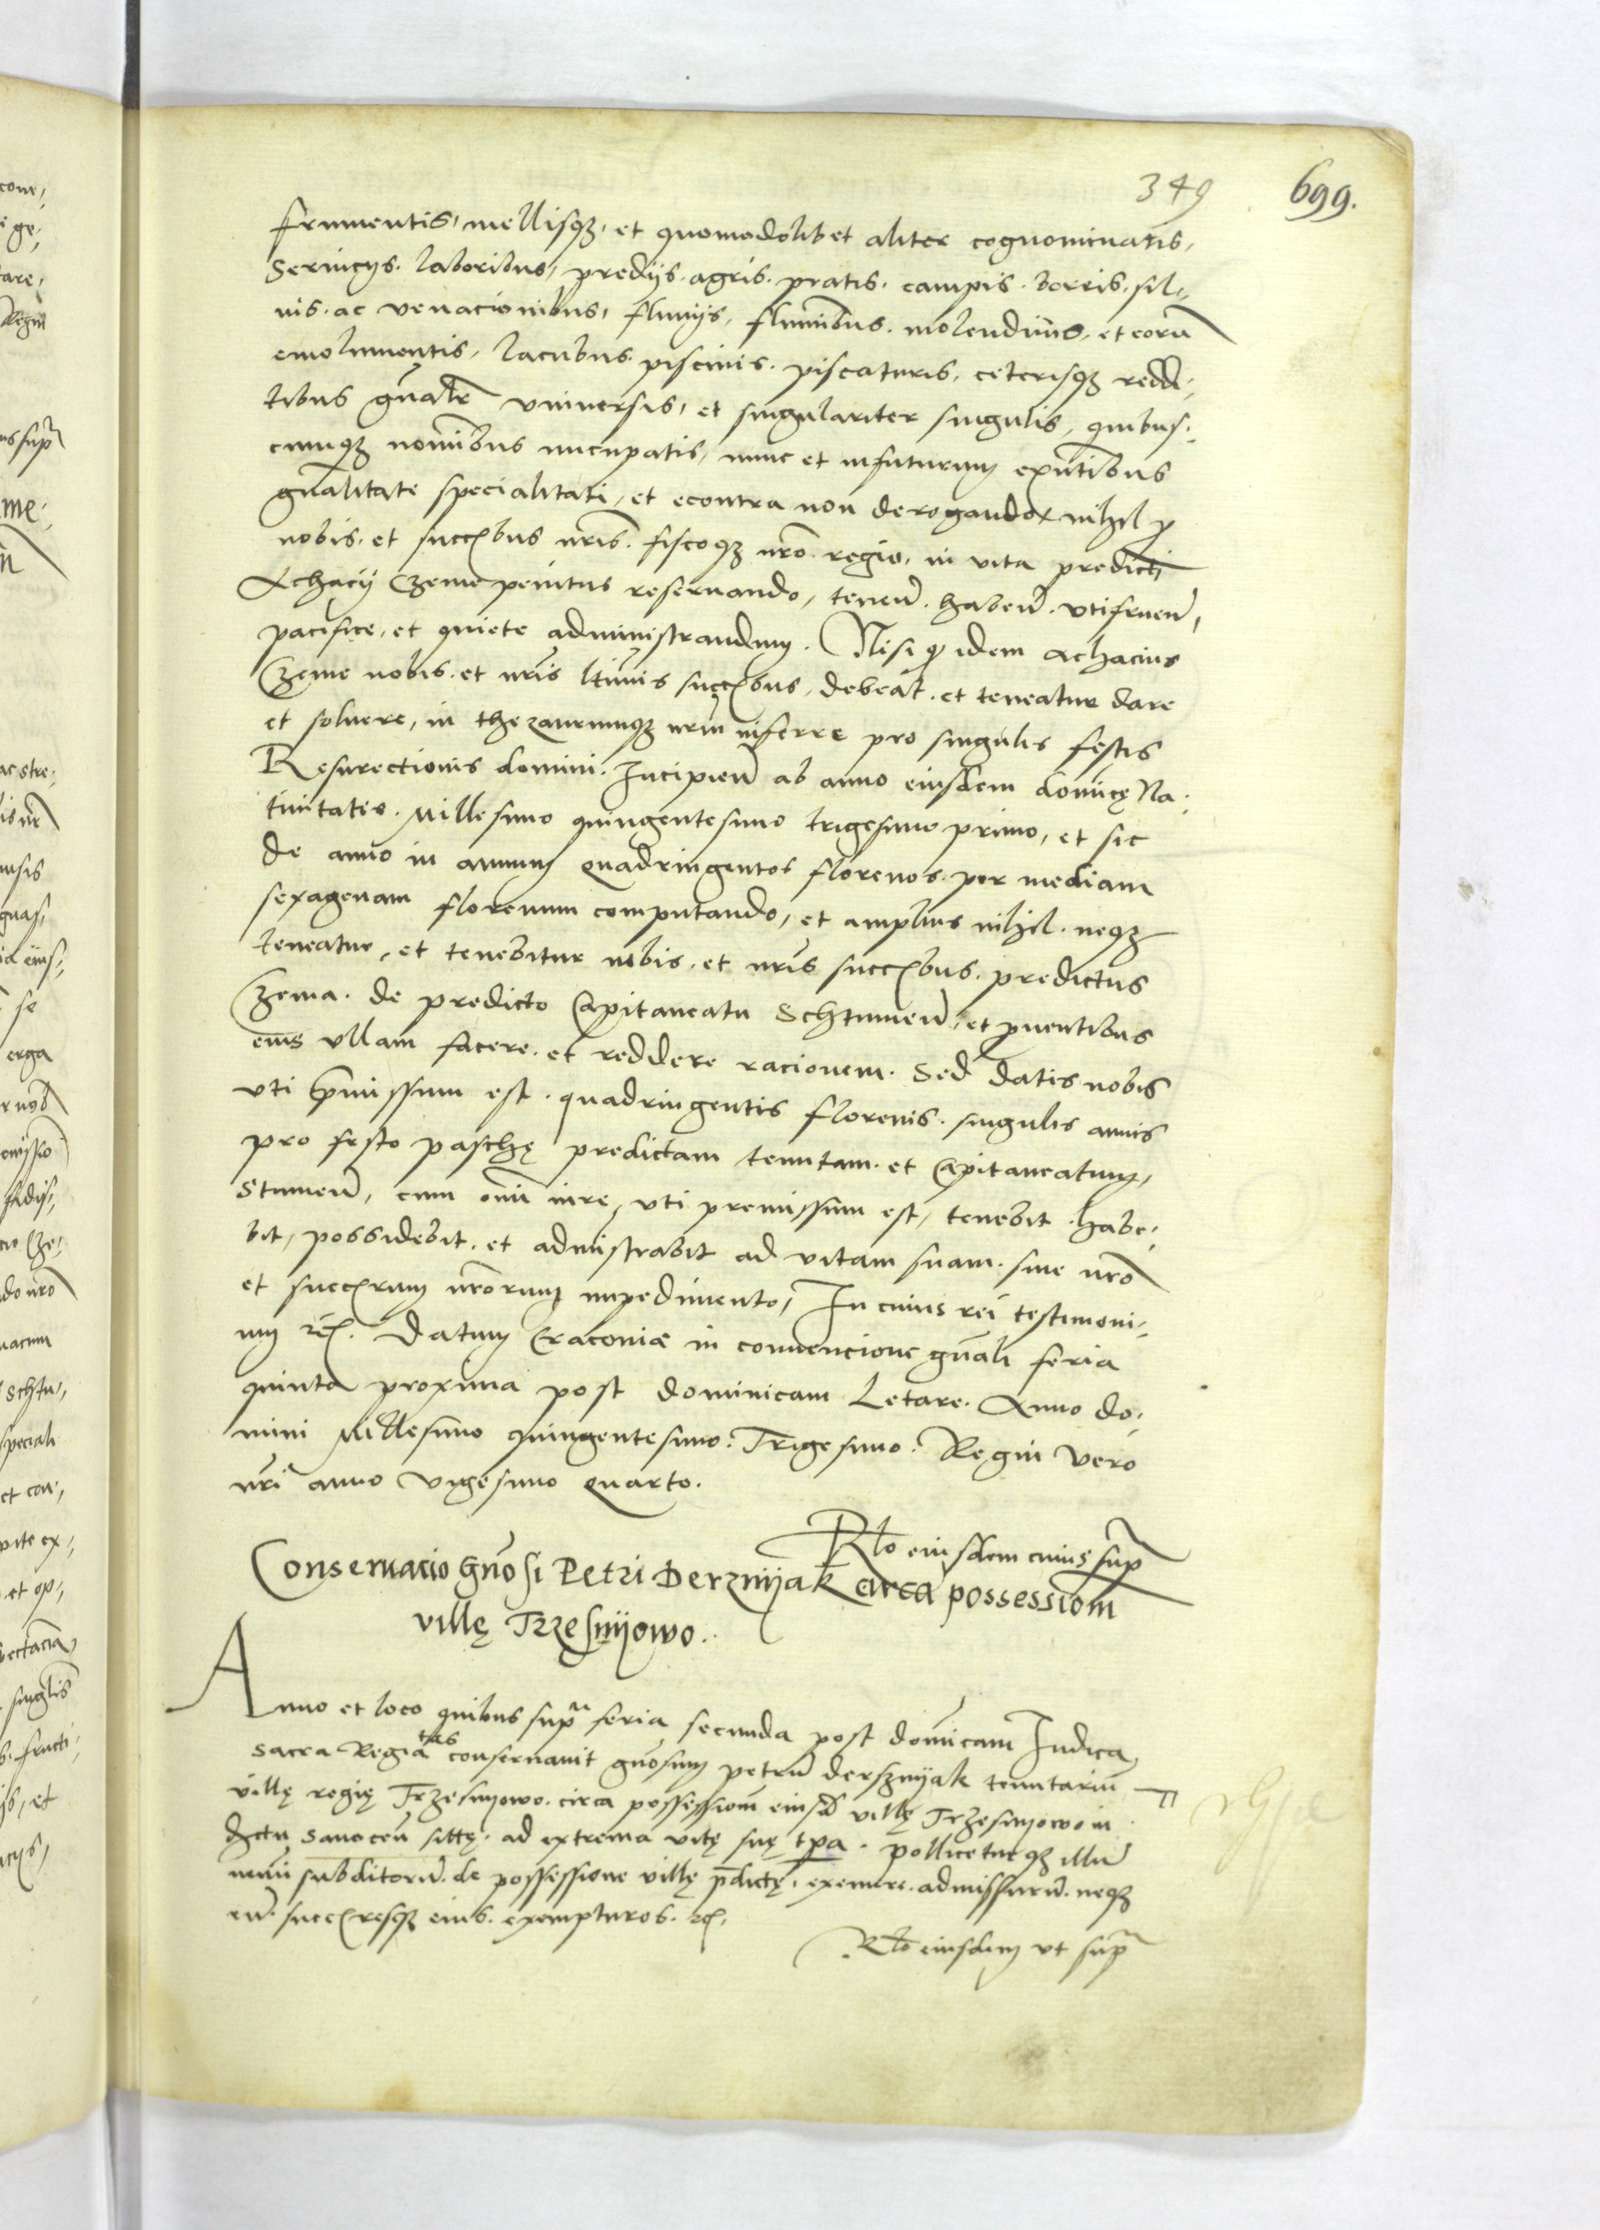 349 699.
frumentis, mellisqz, et quomodolibet aliter cognominatis,
Seruicys. laboribus, predijs. agris. pratis. campis. borris. sil-
uis. ac venacionibus, fluuijs, fluminibus. molendinis. et eorū
emolumentis, lacubus. piscinis. piscaturis, ceterisqz reddi-
tibus gnalr vniuersis, et singulariter singulis, quibus-
cunqz nominibus nuncupatis, nunc et infuturum exntibus
gnalitate specialitati, et econtra non derogando, nihil p
nobis. et succbus nris. fiscoqz nro. regio, in vita predicti
Achacij Czeme penitus reseruando, tenen. haben. vtifruen,
pacifice, et quiete administrandum. Nisi q idem Achacius
Czeme nobis. et nris ltimis succbus, debeat. et teneatur dare
et soluere, in thezaurumqz nrm inferre pro singulis festis
Resurectionis domini. Incipien ab anno eiusdem domicę Na-
tiuitatis. Millesimo quingentesimo trigesimo primo, et sic
de anno in annum quadringentos florenos. per mediam
sexagenam florenum computando, et amplius nihil. neqz
teneatur, et tenebitur nobis. et nris succbus. predictus
Czema. de predicto Capitaneatu Schtumen, et puentibus
eius vllam facere. et reddere racionem. Sed datis nobis
vti pmissum est. quadringentis florenis. singulis annis
pro festo paschę predictam tenutam. et Capitaneatum,
Stumen, cum omi iure, vti premissum est, tenebit. habe-
bit, possidebit. et admistrabit ad vitam suam. sine nro
et succrum nrorum impedimento, In cuius rei testimoni-
um etc. Datum Cracouiæ in conuencione gnali feria
quinta proxima post dominicam Letare. Anno do-
mini Millesimo quingentesimo. Trigesimo. Regni vero
nri anno vigesimo quarto.
Rlo eiusdem cuius supra
Conseruacio Gnosi Petri Derznijak circa possessiom
villę Trzesnijowo.
Anno et loco quibus supra feria secunda post domicam Iudica,
Sacra Regia tas conseruauit gnosum petru dersznijak tenutariu
villę regię Trzesnyowo. circa possessiom eiusd villę Trzesnyowo in
dctu Sanocen sittę. ad extrema vitę suę tpa. pollicetur qz illu
nemi subditoru. de possessione villę pdictę, exemere. admissuru. neqz
eu. succresqz eius. exempturos. etc.
Rlo eiusdem vt supra